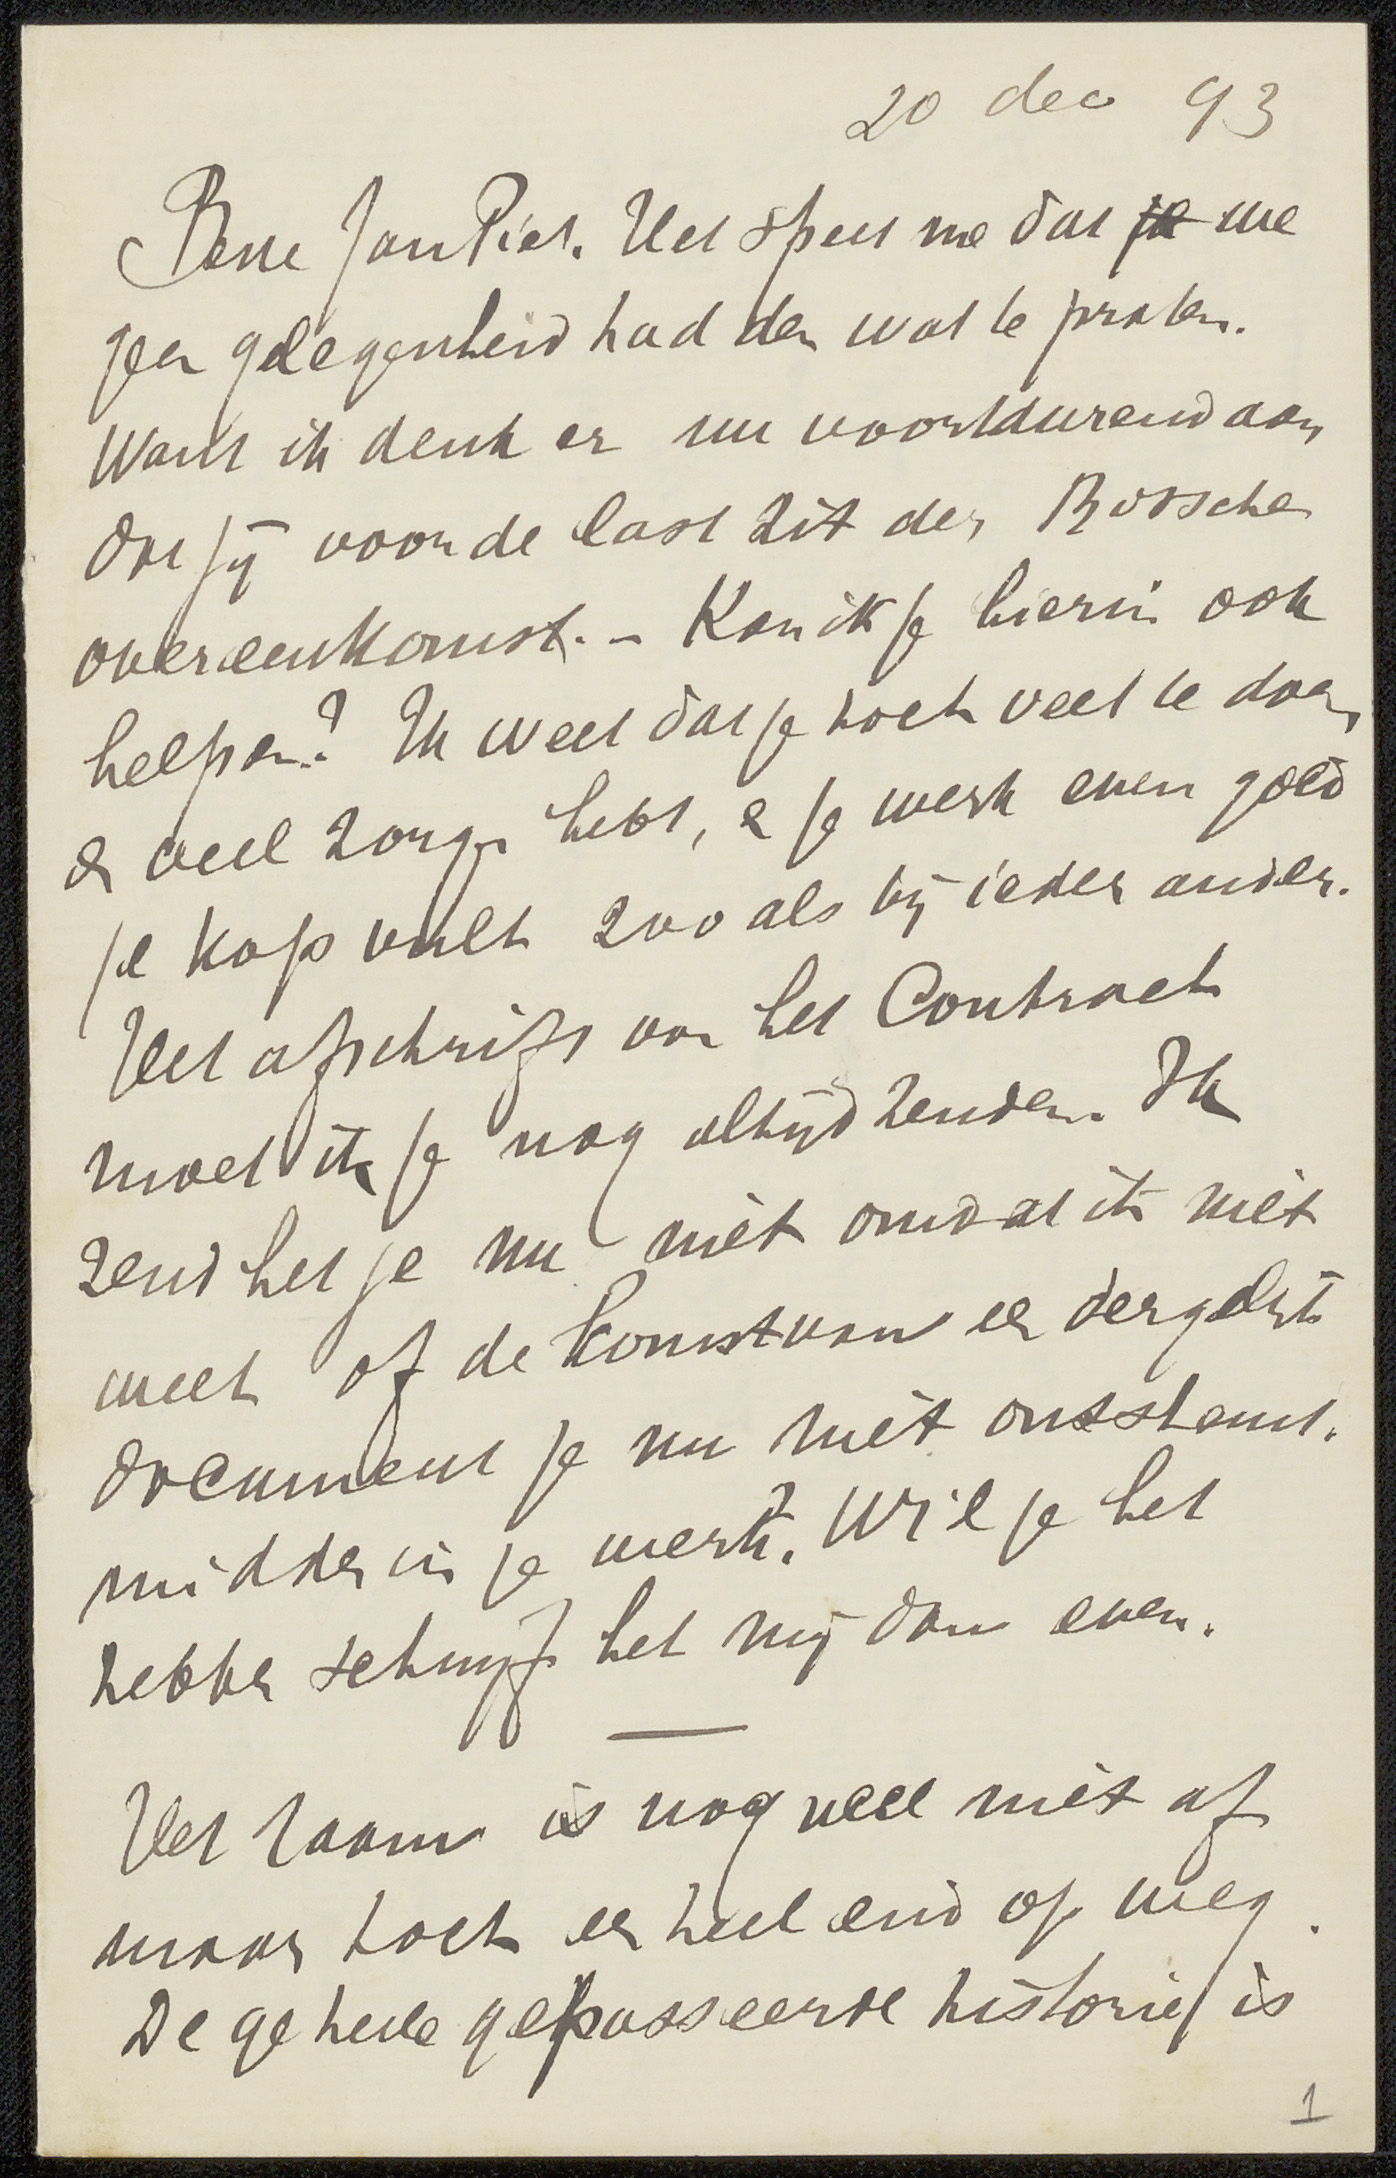 20 dec 93
Beste Jan Piet. Het speet me dat je we
geen gelegenheid had den wat te praten.
Want ik denk er nu voortdurend aan
dat jij voor de last zit der Bossche
overeenkomst. – Kan ik je hierin ook
helpen? Ik weet dat je toch veel te doen
en veel zorgen hebt, & je werk even goed
je kop vult zooals bij ieder ander.
Het afschrift van het Contract
moet ik je nog altijd zenden. Ik
zend het je nu niet omdat ik niet
weet of de komst van een dergelijk
document je nu niet ontstemt.
midden in je werk? Wil je het
hebben schrijf het mij dan even.
Het raam is nog veel niet af
maar toch een heel eind op weg.
De geheele gepasseerde historie is
1